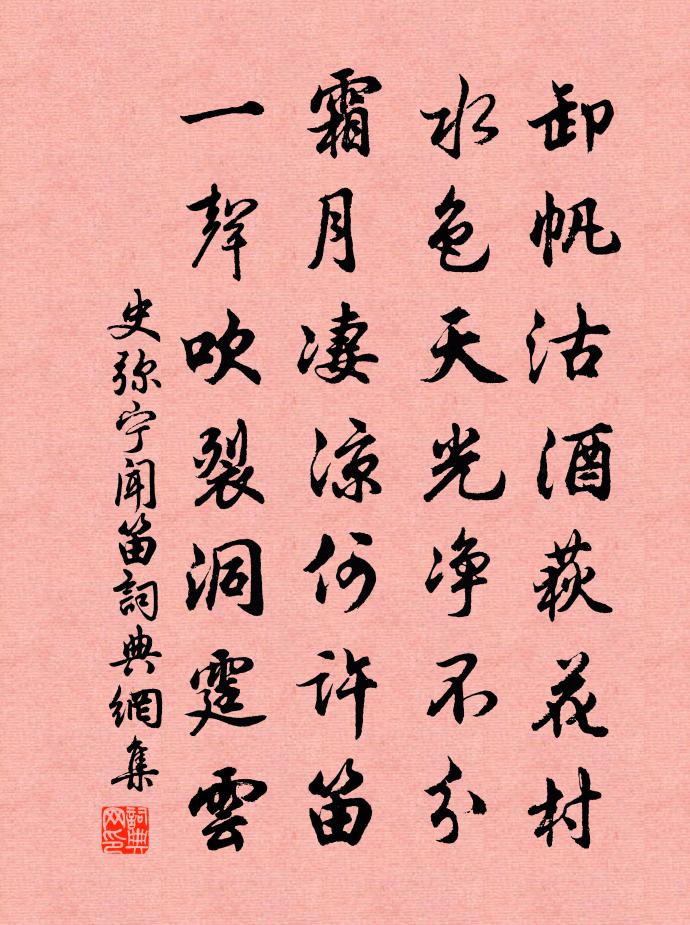 卸帆沽酒荻花村
水色天光净不分
霜月凄凉何许笛
一聲吹裂洞霆雲
史弥宁闻笛詞典網集
詞典网印